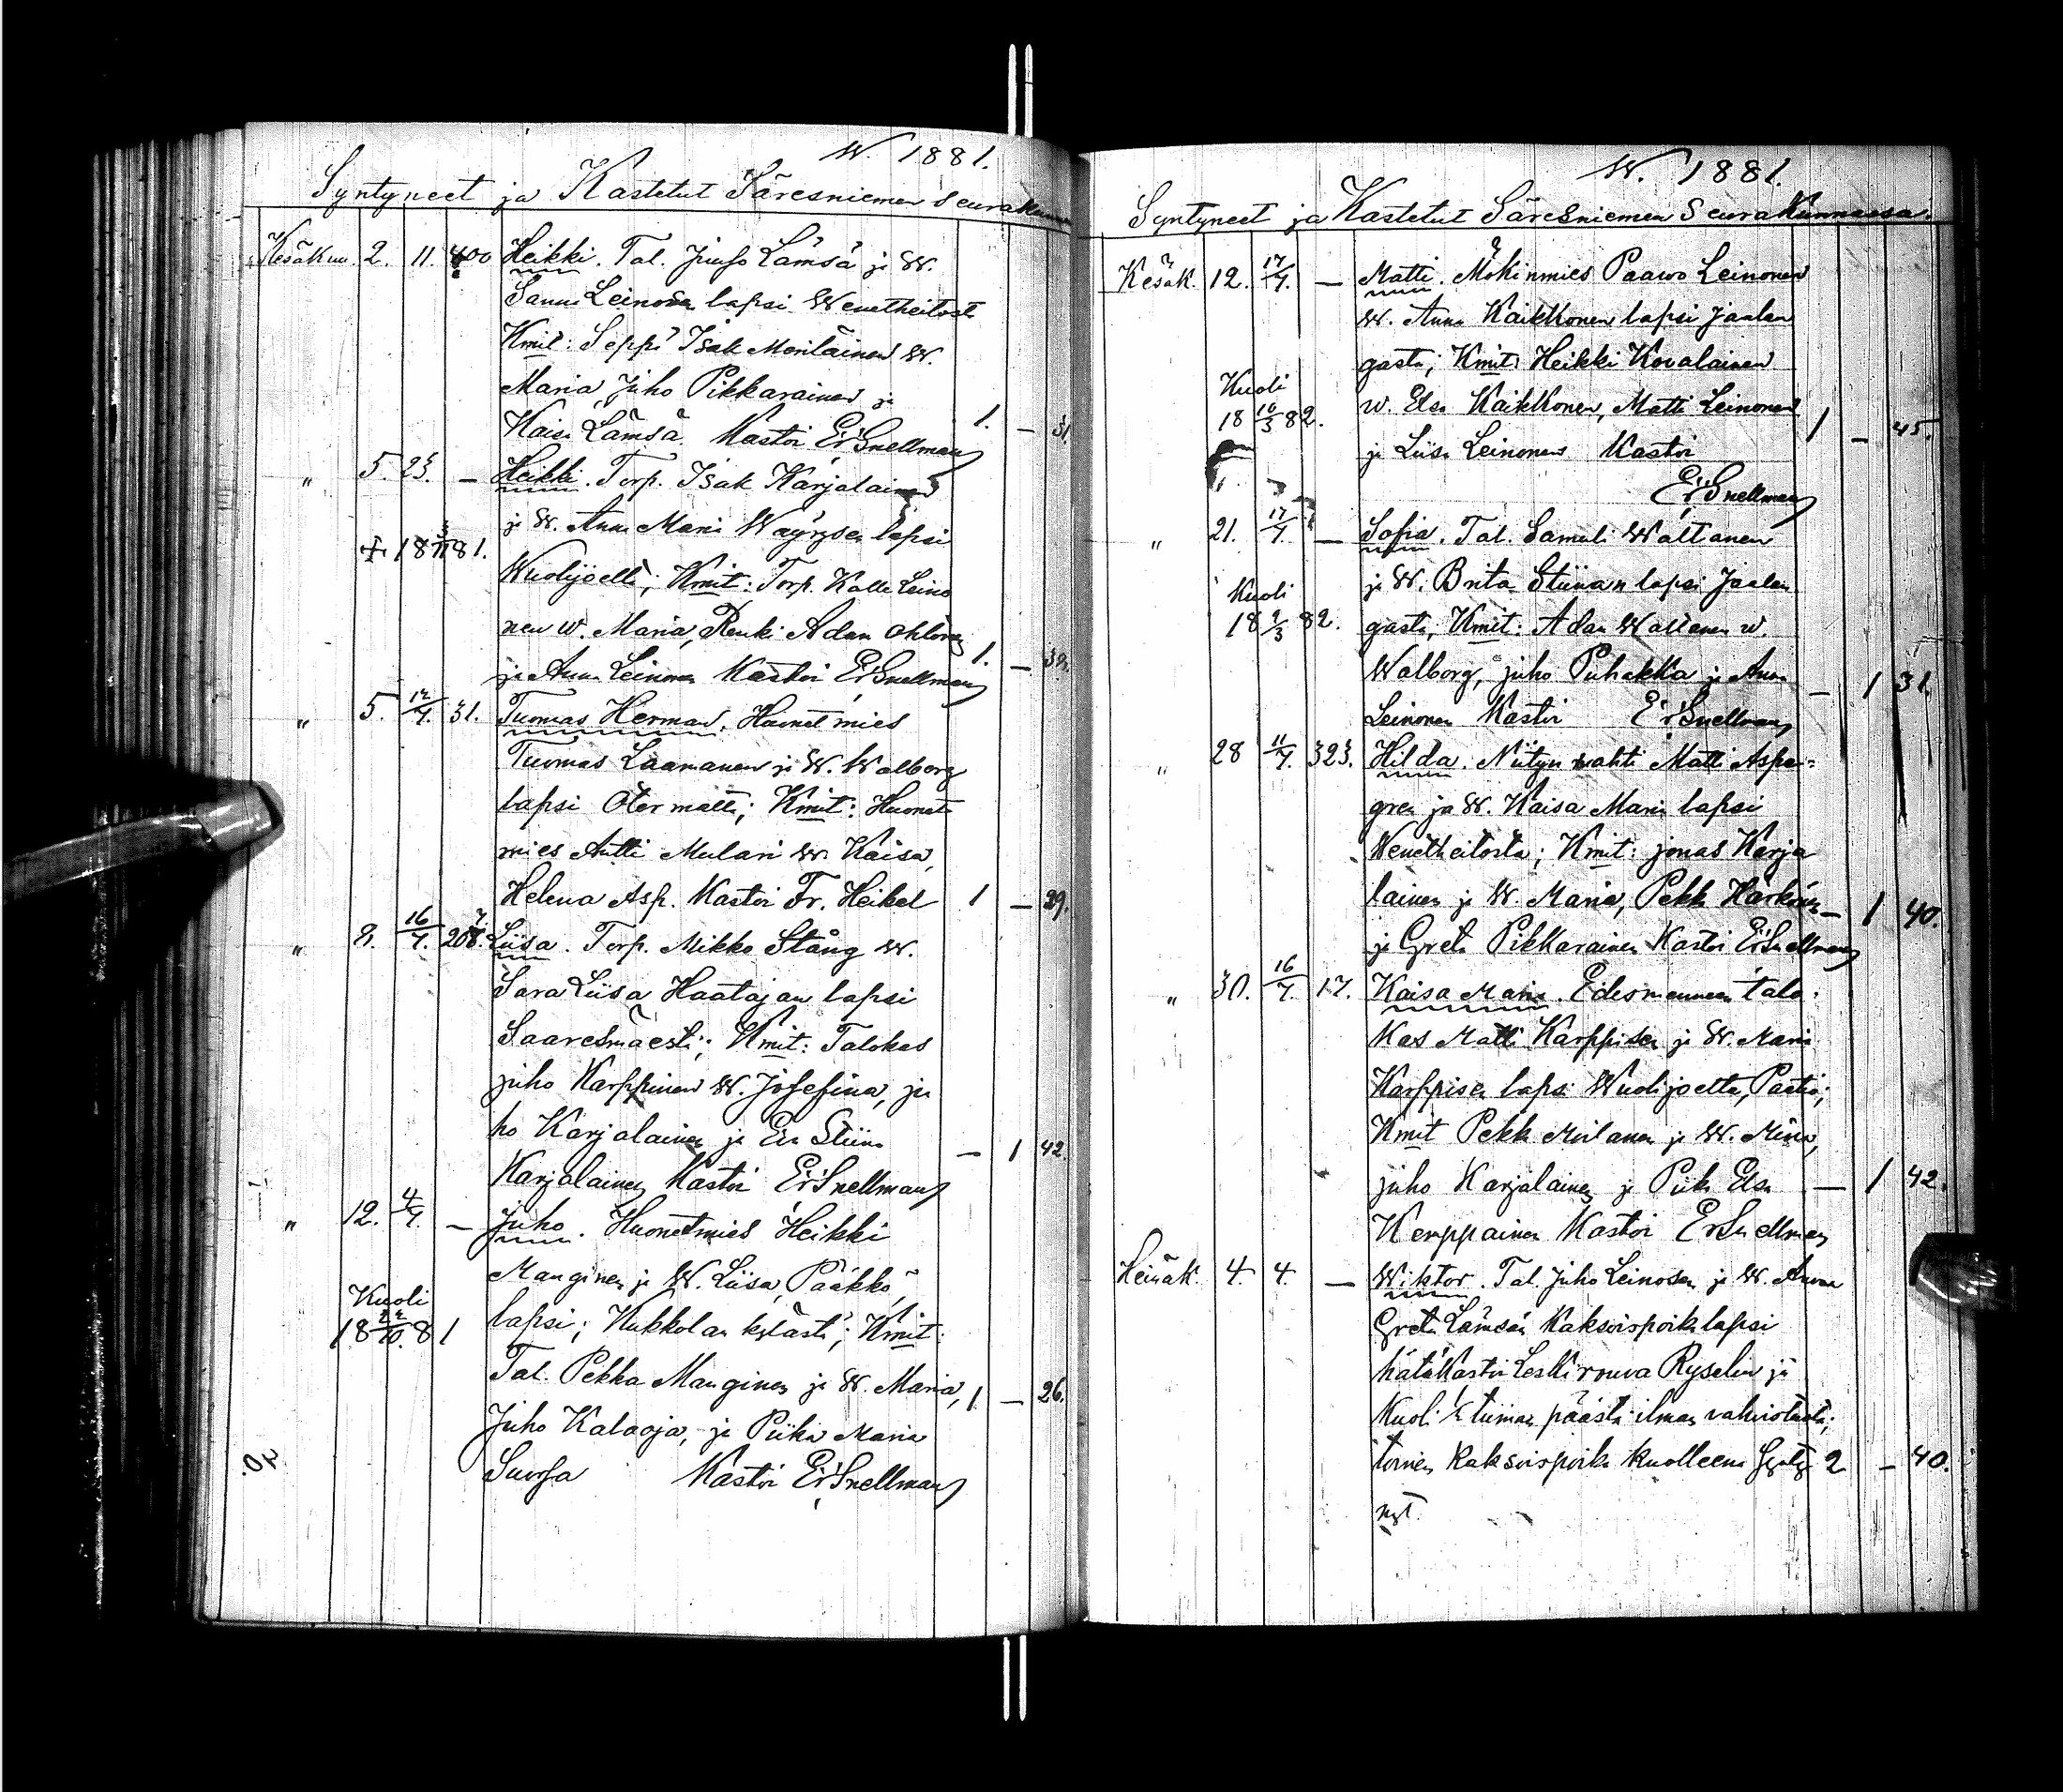 W. 1881.
Syntyneet ja Kastetut Säresniemen Seurakunn
Kesäkuu 2. 11. 400 Heikki. Tal. Juuso Lämsä ja W.
Sanna Leinosen lapsi Wenetheitost
Kmit: Seppä Isak Moilainen W.
Maria, Juho Pikkarainen ja
Kaisa Lämsä. Kastoi E. Snellman 1. — 31.
" 5. 23. — Heikki. Torp. Isak Karjalainen
ja W. Anna Maria Wäyrysen lapsi
✝ 18 81.
Wuolijoelta; Kmit: Torp. Kalle Leino
nen W. Maria, Renki Adam Ohlsen
ja Anna Leinonen Kastoi E. Snellman 1. — 39.
" 5. 17/7. 31. Tuomas Herman. Huonetmies
Tuomas Laamanen ja W. Walborg
lapsi Otermalta; Kmit: Huonet
mies Antti Mulari W. Kaisa,
Helena Asp. Kastoi Fr. Heikel 1 — 29.
" 8. 16/7. 208. Liisa. Torp. Mikko Stång W.
Sara Liisa Haatajan lapsi
Saaresmäestä; Kmit: Talokas
Juho Karppinen W. Josefina, Ju
ho Karjalainen ja Eva Stiina
Karjalainen Kastoi E. Snellman — 1 42.
" 12. 4/7. — Juho. Huonetmies Heikki
Manginen ja W. Liisa Pääkkö
Kuoli
lapsi; Kukkolan kylästä; Kmit:
18 22/10. 81
Tal. Pekka Manginen ja W. Maria, 1 — 26.
Juho Kalaoja, ja Piika Maria
Suorsa Kastoi E. Snellman
W. 1881.
Syntyneet ja Kastetut Säresniemen Seurakunnassa.
Kesäk. 12. 17/7. — Matti. Mökinmies Paawo Leinonen
W. Anna Kaikkonen lapsi Jaalan
gasta; Kmit: Heikki Kovalainen
Kuoli
w. Elsa Kaikkonen, Matti Leinonen
18 10/3 82.
ja Liisa Leinonen Kastoi 1 — 45.
E. Snellman
" 21. 17/7. — Sofia. Tal. Samuli Waltanen
ja W. Brita Stiinan lapsi Jaalan
Kuoli
18 9/3 82. gasta; Kmit: Adam Waltanen w.
Walborg, Juho Puhakka ja Anna — 1 31.
Leinonen Kastoi E. Snellman
" 28 11/7. 323. Hilda. Niityn vahti Matti Aspe=
gren ja W. Kaisa Maria lapsi
Wenetheitosta; Kmit: Jonas Karja
lainen ja W. Maria, Pekka Härkönen — 1 40.
ja Greta Pikkarainen Kastoi E. Snellman
" 30. 16/7. 17. Kaisa Maria. Edesmenneen talo=
kas Matti Karppisen ja W. Maria
Karppisen lapsi Wuolijoelta,
Kmit Pekka Moilanen ja W. Miina,
Juho Karjalainen ja Piika Elsa — 1 42.
Kemppainen Kastoi E. Snellman
Heinäk. 4. 4. — Wiktor. Tal. Juho Leinosen ja W. Anna
Greta Lämsän Kaksoispoika lapsi
hätäkastoi Leskirouva Ryselin ja
Kuoli ½ tiiman päästä ilman vahvistusta;
toinen Kaksoispoika kuolleena synty 2 — 40.
nyt.